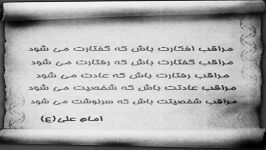 مراقب افکارت باش که گفتارت می شود
مراقب گفتارت باش که رفتارت می شود
مراقب رفتارت باش که عادت می شود
مراقب عادتت باش که شخصیت می شود
مراقب شخصیتت باش که سرنوشت می شود
امام علی(ع)